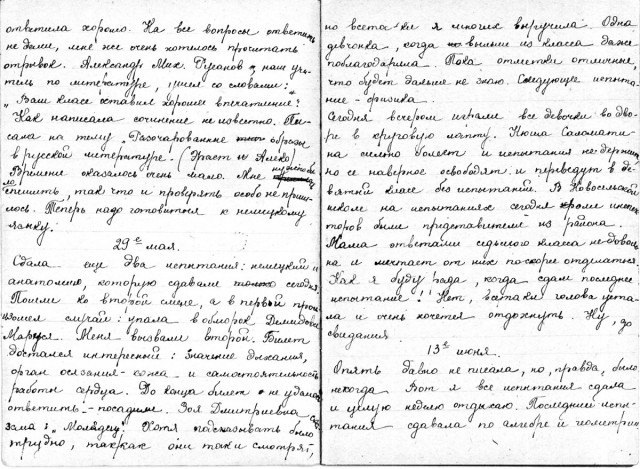 ответила хорошо. На все вопросы ответить
не дали, мне же очень хотелось прочитать
отрывок. Александр Мих. наш учи-
тель по литературе, ушел со словами:
„Ваш класс оставил хорошее впечатление".
Как написала сочинение не известно. Пи-
сала на тему „Разочарованные образы
в русской литературе". (Эраст и Алеко)
Времени оказалось очень мало. Мне
спешить, так что и проверять особо не приш-
лось. Теперь надо готовиться к немецкому
языку.
29го мая.
Сдала еще два испытания: немецкий и
анатомию, которую сдавали только сегодня.
Пошли ко второй смене, а в первой прои-
зошел случай: упала в обморок Демидова
Маруся. Меня вызвали второй. Билет
достался интересный: значение дыхания,
орган осязания-кожа и самостоятельность
работы сердца. До конца билет не удалось
ответить - посадили. Зоя Дмитриевна ска-
зала: „Молодец". Хотя подсказывать было
трудно, так как они так и смотрят,
но всетаки я многих выручила. Одна
девчонка, когда вышли из класса даже
поблагодарила. Пока отметки отличные,
что будет дальше не знаю. Следующее испыта-
ние - физика.
Сегодня вечером играли все девочки во дво-
ре в круговую лапту. Нюша Саломати-
на сильно болеет и испытания не держит,
но ее наверное освободят и переведут в де-
вятый класс без испытаний. В
школе на испытаниях сегодня кроме инспек-
торов были представители из района.
Мама ответами седьмого класса не доволь-
на и мечтает от них поскорее отделаться.
Как я буду рада, когда сдам последнее
испытание! Нет, всетаки голова уста-
ла и очень хочется отдохнуть. Ну, до
свидания.
13го июня.
Опять давно не писала, но, правда, было
некогда. Вот я все испытания сдала
и целую неделю отдыхаю. Последние испы-
тания сдавала по алгебре и геометрии,